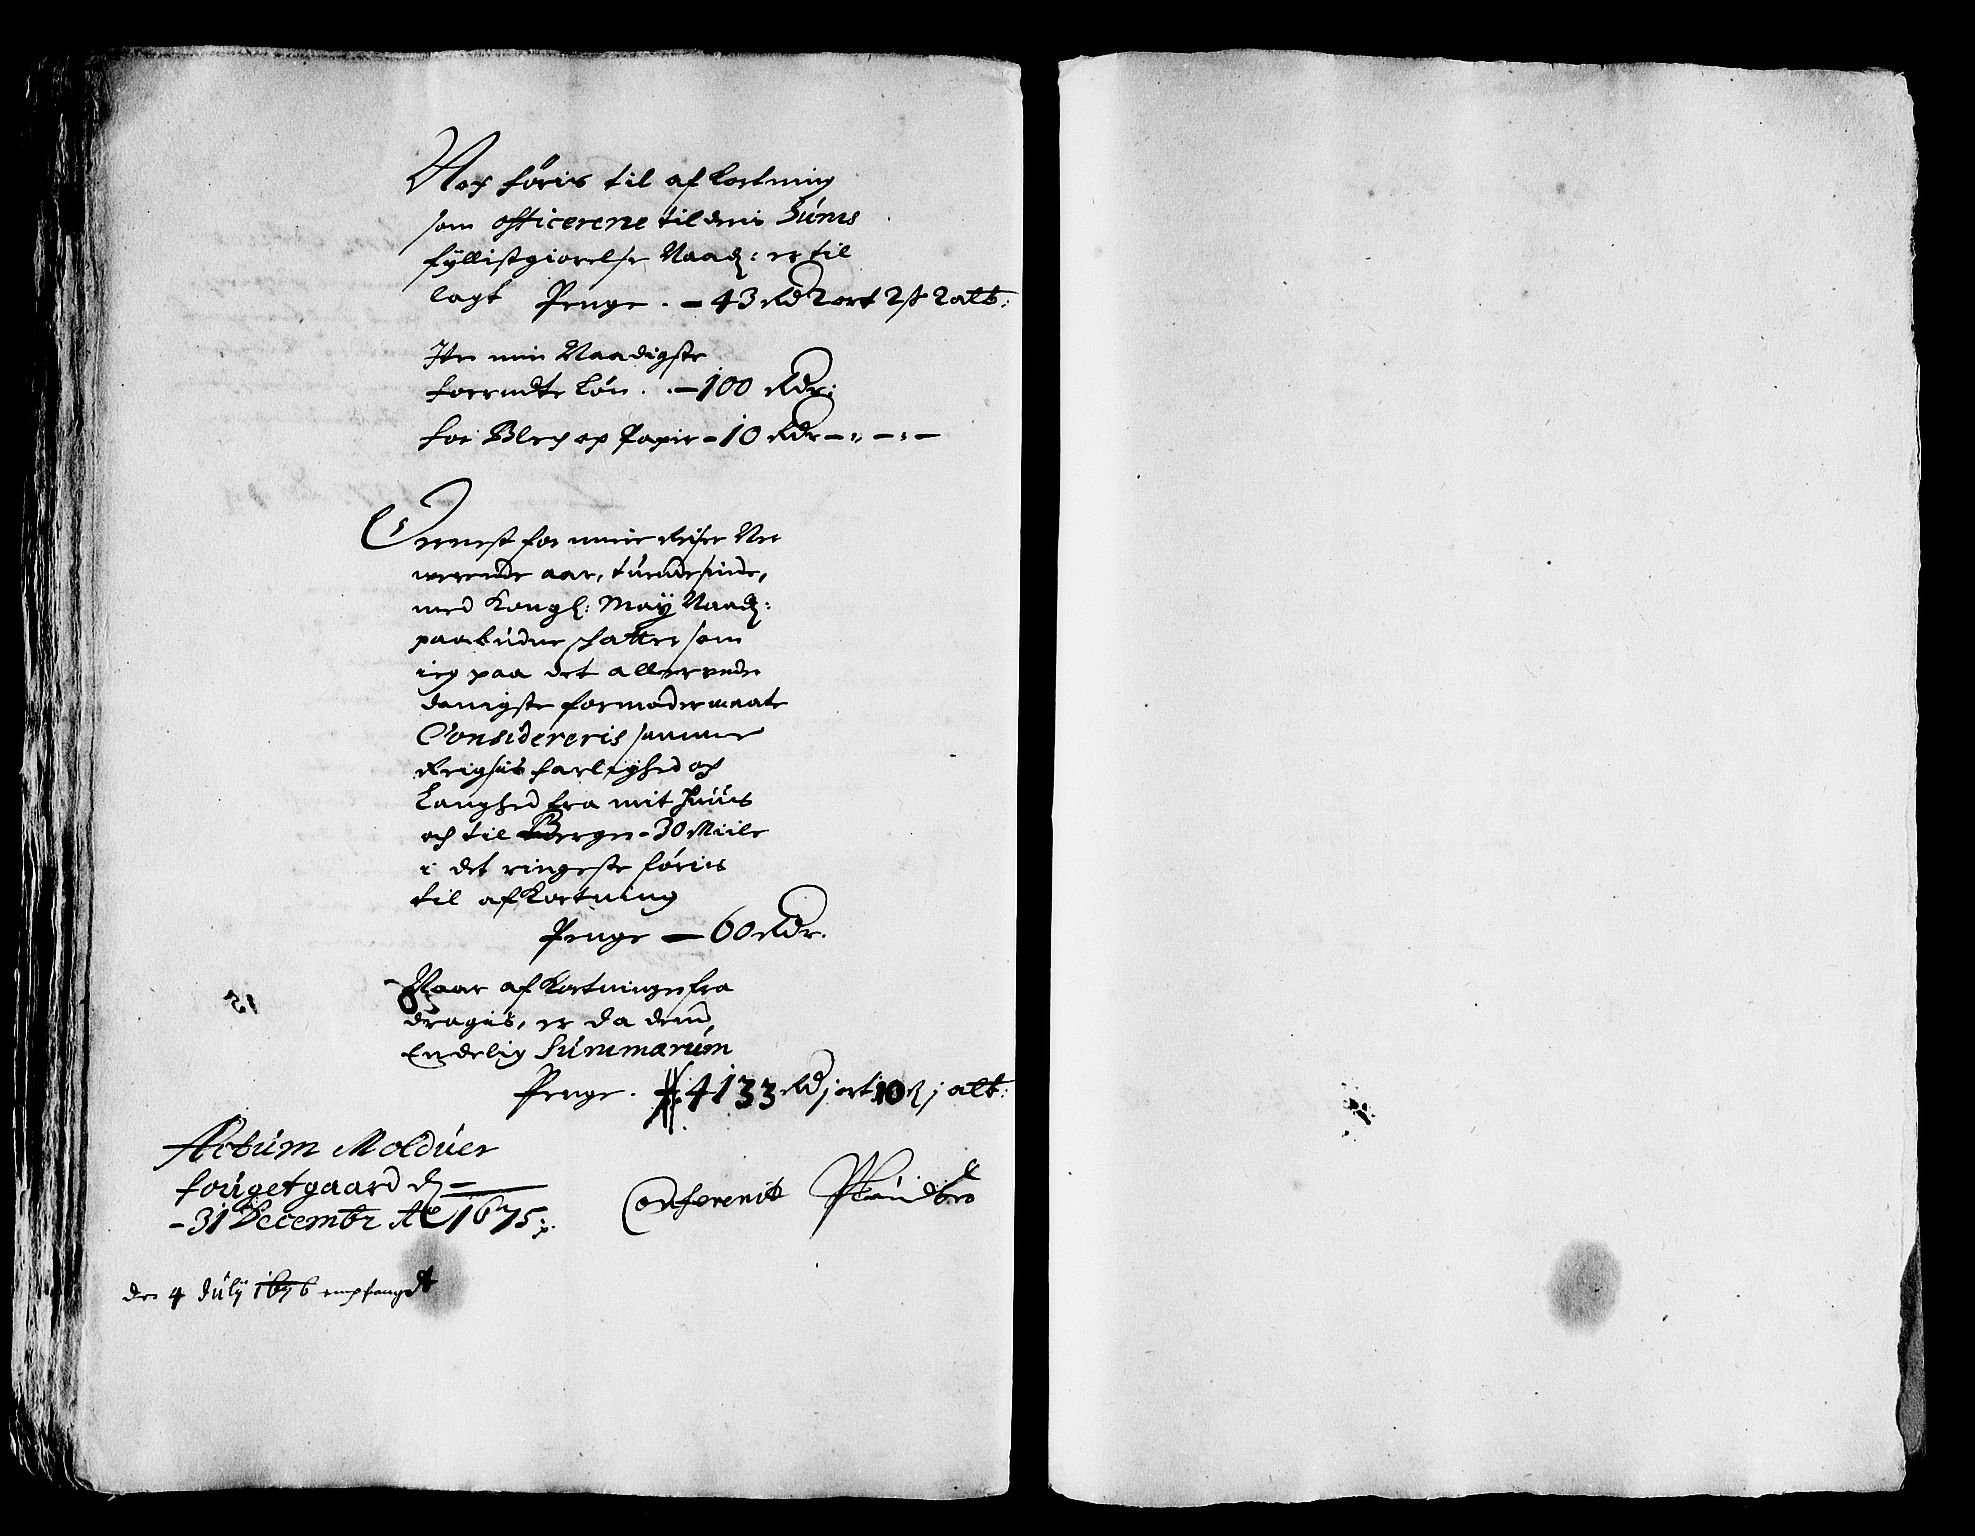 Noch føris til afkortning
som officererne til deris Sums
fyllistgiørelse Naadg: er til
lagt Penge. – 43 Rd 2 ort 2 ß 2 alb:
Item min Naadigste
forundte Løn. – 100 Rdr:
for Blech och Papir – 10 Rdr –:–:–
Ernest for mine Reiser Ner
werende aar, tuende sinde,
med Kongl: May Naadg:
paabudne schatter som
ieg paa det allerunder
danigste formoder maate
Considereris samme
Reigsis farlighed och
Langhed fra mit Huus
och til Bergen – 30 Miile
i det ringeste føriis
til afkortning
Penge — 60 Rdr.
Naar afkortningen fra
dragis, er da dend
Endelig Summarum
Penge. 4133 Rd j ort 10 ß j alb:
Actum Molduer
fougetgaard d.
– 31 Decembr Ao 1675:
Confererit
den 4 July 1676 empfangdt